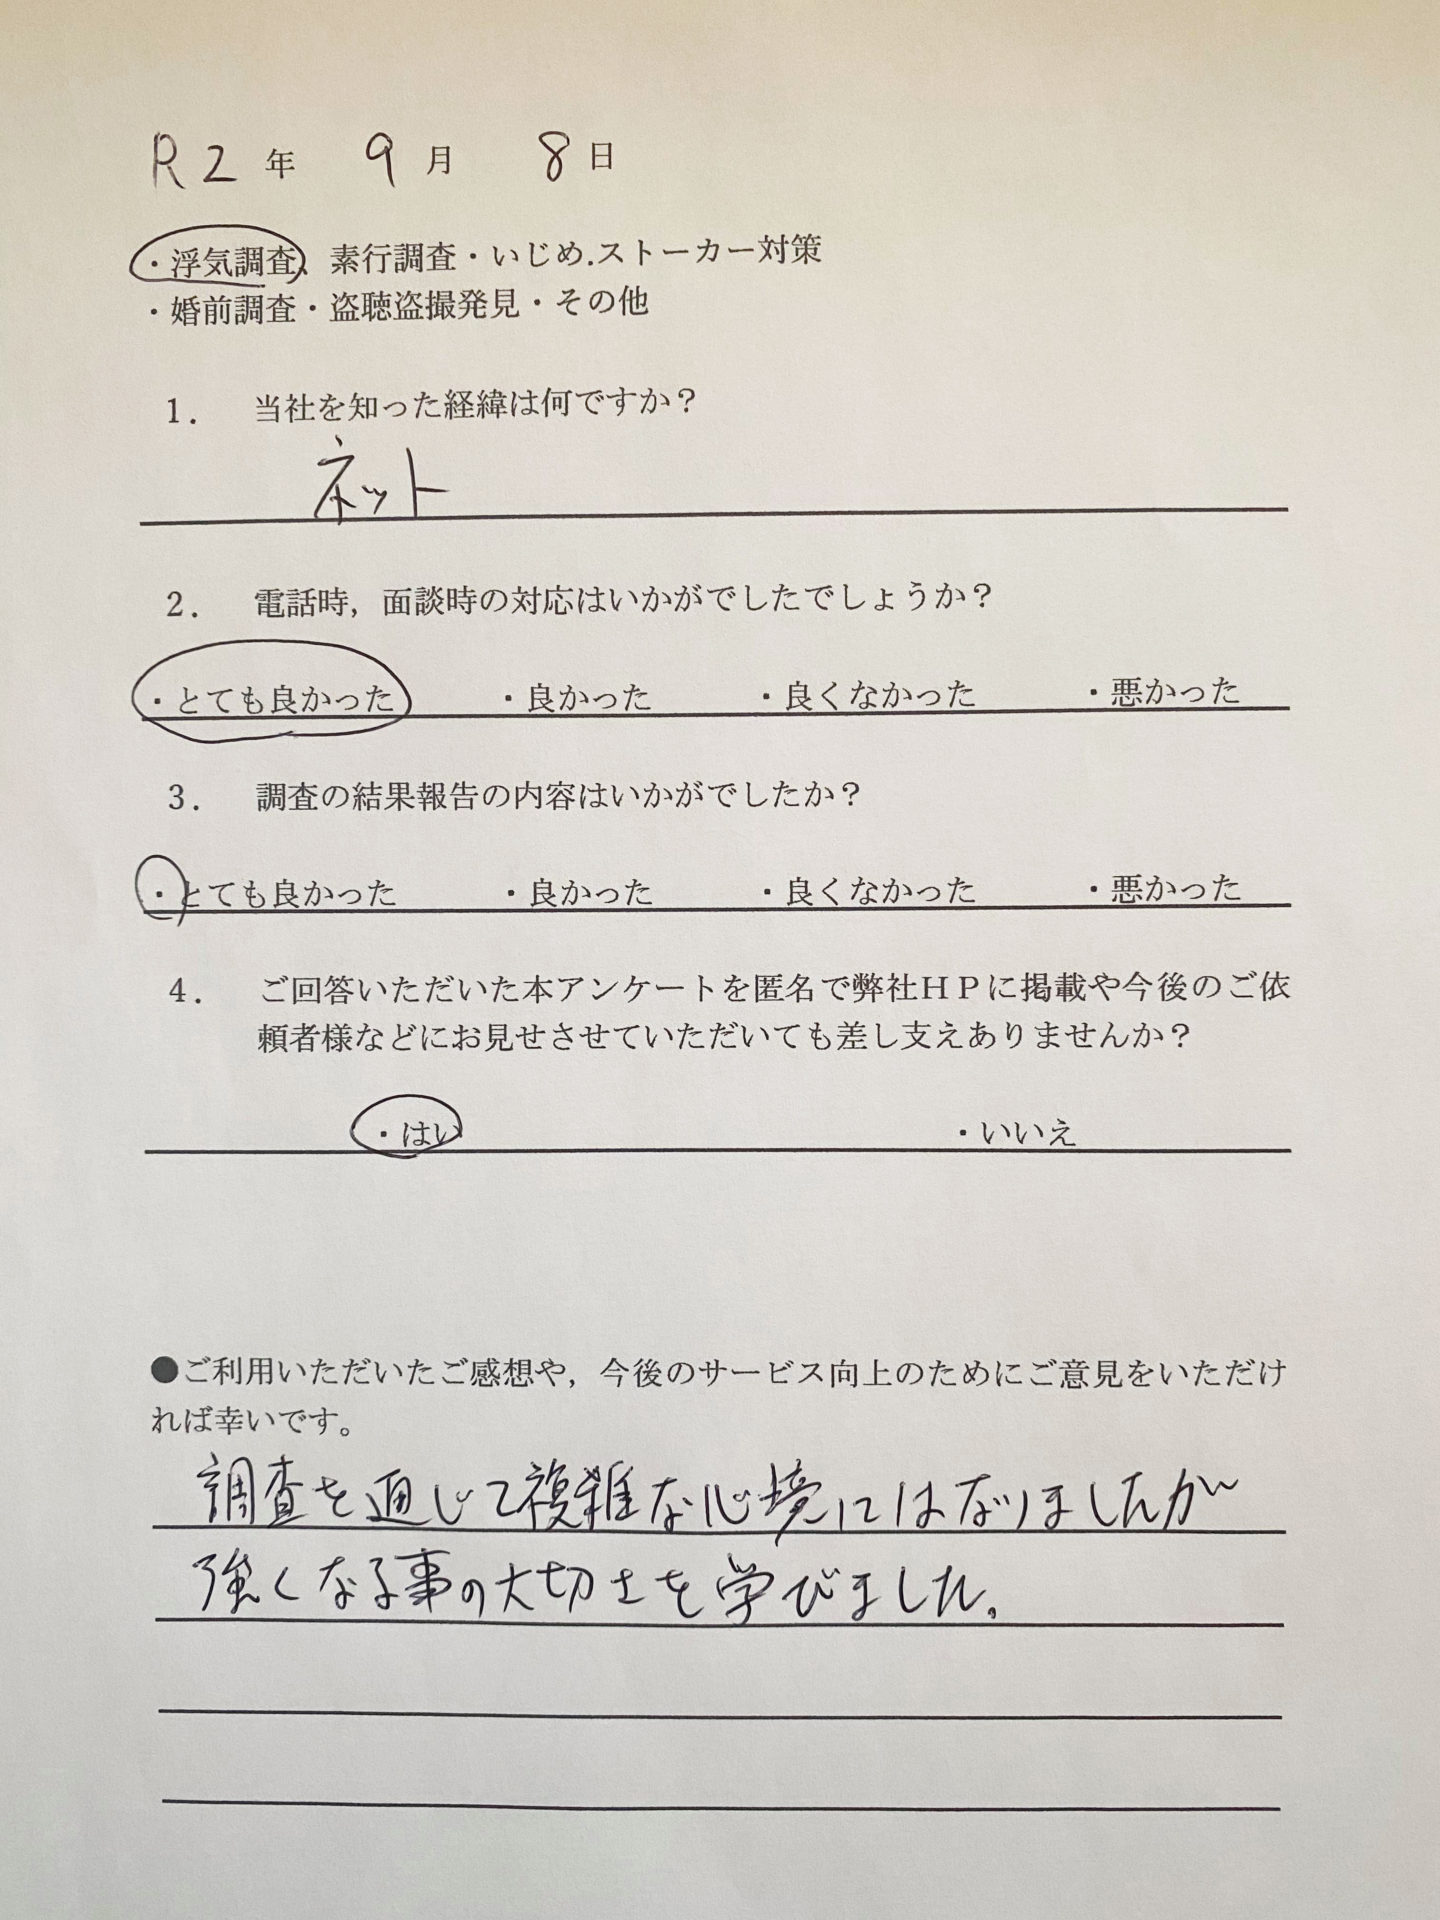 R2年 9月 8日
・浮気調査、素行調査・いじめ.ストーカー対策
・婚前調査・盗聴盗撮発見・その他
1. 当社を知った経緯は何ですか？
ネット
2. 電話時，面談時の対応はいかがでしたでしょうか？
・とても良かった ・良かった ・良くなかった ・悪かった
3. 調査の結果報告の内容はいかがでしたか？
・とても良かった ・良かった ・良くなかった ・悪かった
4. ご回答いただいた本アンケートを匿名で弊社ＨＰに掲載や今後のご依
頼者様などにお見せさせていただいても差し支えありませんか？
・はい ・いいえ
●ご利用いただいたご感想や，今後のサービス向上のためにご意見をいただけ
れば幸いです。
調査を通じて複雑な心境にはなりましたが
強くなる事の大切さを学びました。